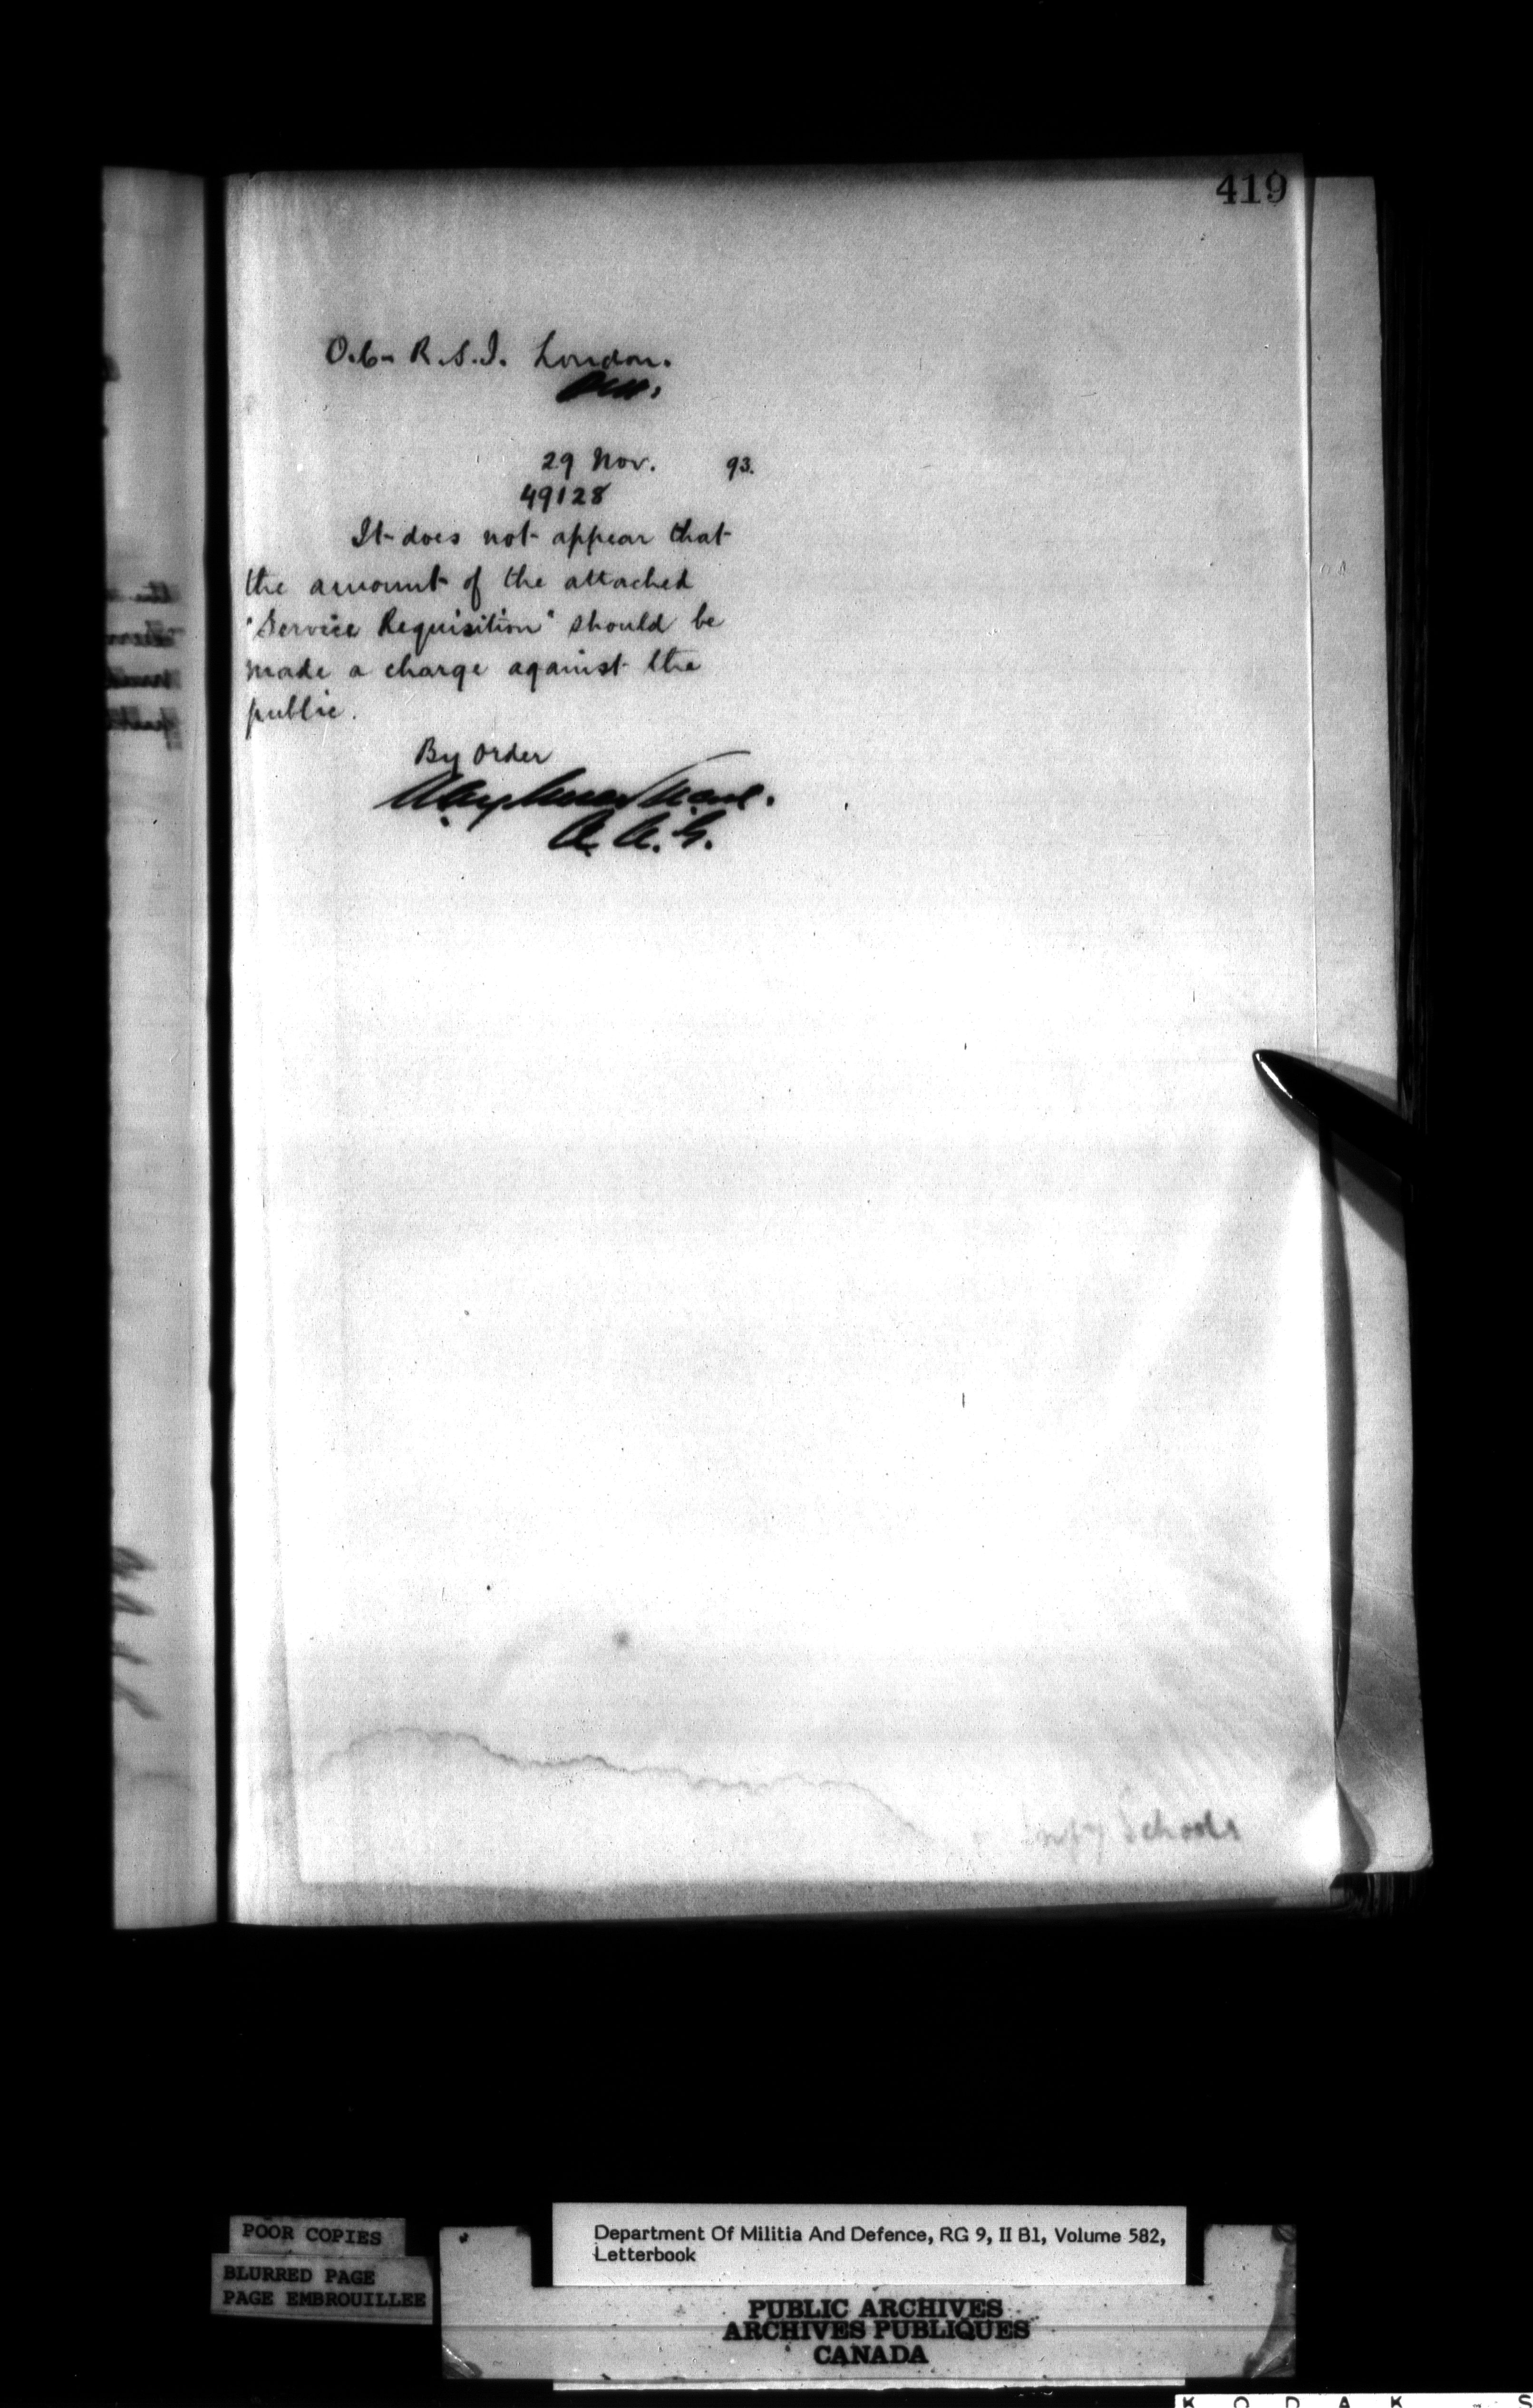 419
O.C. R.S.I. London.
Ont.
29 Nov. 93.
49128
It does not appear that
the amount of the attached
"Service Requisition" should be
made a charge against the
public.
By Order
A. A. G.
Schools
POOR COPIES
BLURRED PAGE
PAGE EMBROUILLEE
Department Of Militia And Defence, RG 9, II B1, Volume 582,
Letterbook
PUBLIC ARCHIVES
ARCHIVES PUBLIQUES
CANADA
K O D A K S